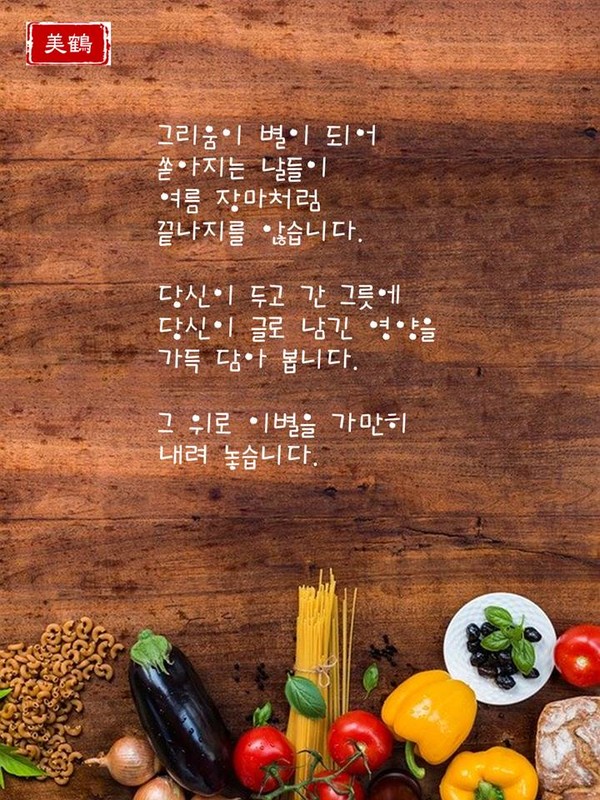 美鶴
그리움이 별이 되어
쏟아지는 날들이
여름 장마처럼
끝나지를 않습니다.
당신이 두고 간 그릇에
당신이 글로 남긴 영양을
가득 담아 봅니다.
그 위로 이별을 가만히
내려 놓습니다.